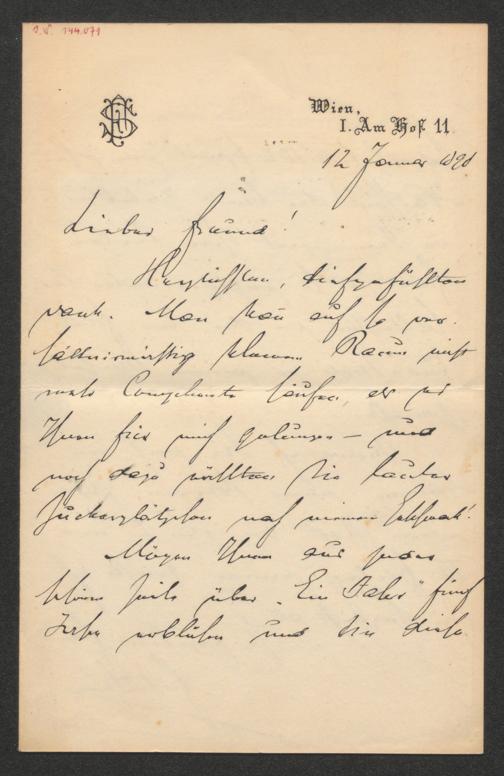 I.N. 144.071
Wien,
I. Am Hof 11
12 Januar 1891
Lieber Freund!
Herzlichsten, tiefgefühlten
Dank. Man kan auf so ver-
hältnismässig kleinem Raum nicht
mehr Complimente häufen, als es
Ihnen für mich gelungen – und
noch dazu wählten Sie lauter
Zuckerplätzchen nach meinem Geschmack!
Mögen Ihnen aus jeder
Zeile über "Ein Faler" fünf
und die